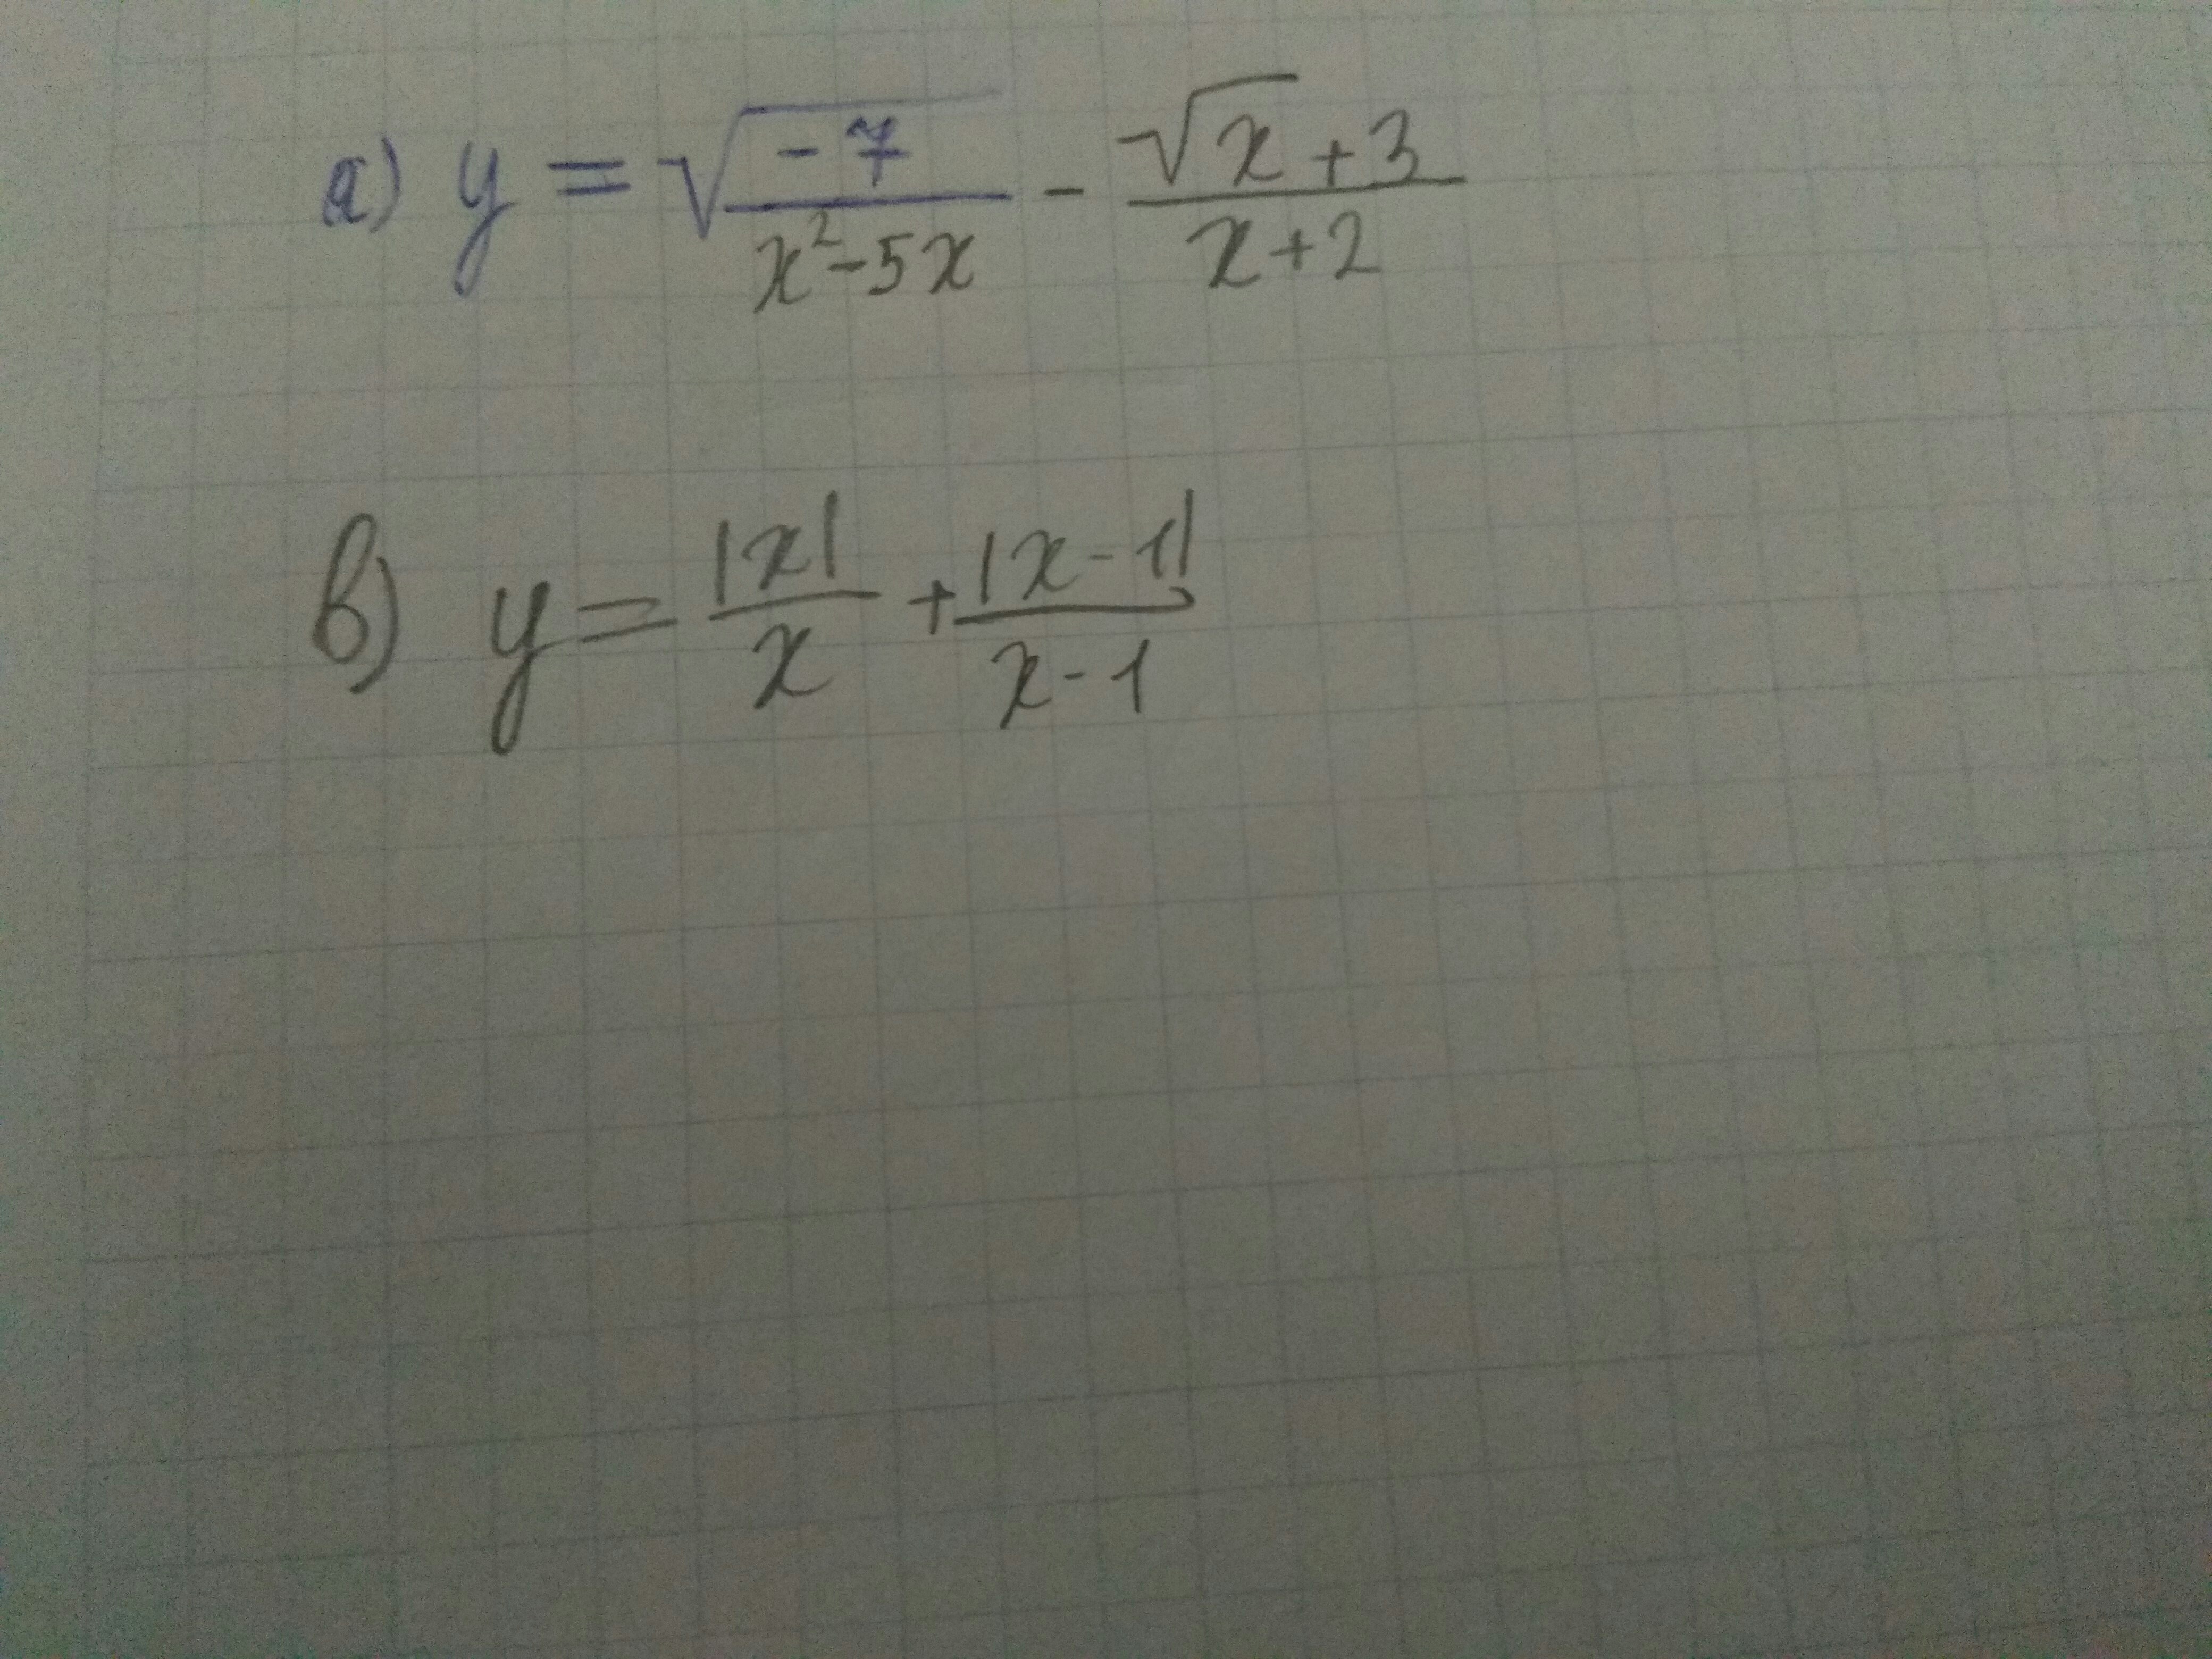 а) y = √(-7/(x²-5x)) - (√x+3)/(x+2)
в) y = |x|/x + |x-1|/(x-1)